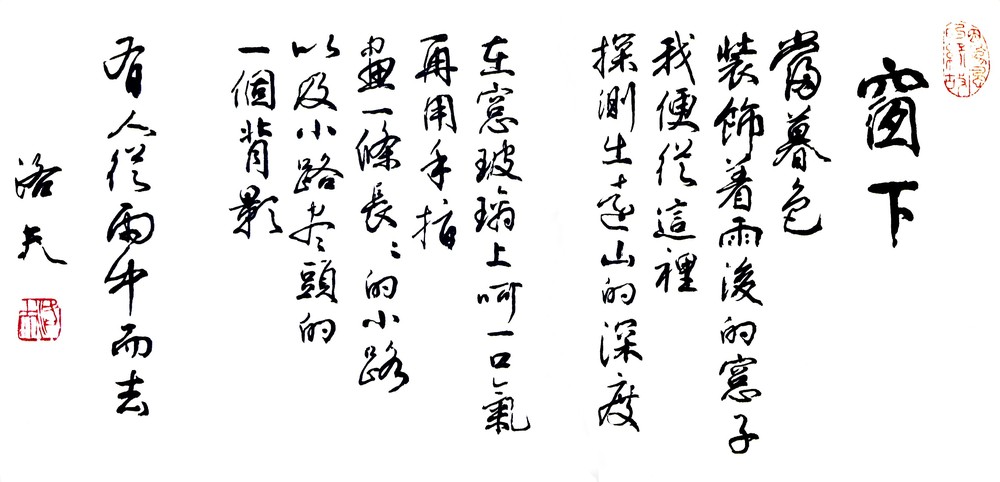 窗下
當暮色
裝飾着雨後的窗子
我便從這裡
探測出遠山的深度
在窗玻璃上呵一口氣
再用手指
畫一條長長的小路
以及小路盡頭的
一個背影
有人從雨中而去
洛夫